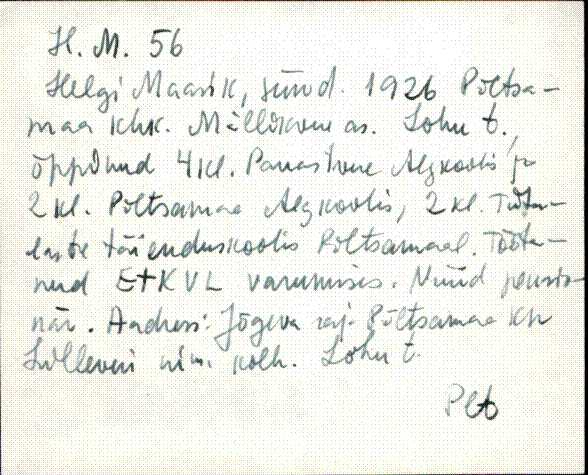 H. M. 56
Helgi Maasik, sünd. 1926 Põltsa-
maa khk. Mällikvere as. Lohu t.,
õppinud 4 kl. Pauastvere Algkoolis ja
2 kl. Põltsamaa Algkoolis, 2 kl. Tööta-
laste täienduskoolis Põltsamaal. Tööta-
nud ETKVL varumises. Nüüd pensio-
när. Aadress: Jõgeva raj. Põltsamaa kn
nim. kolh. Lohu t.